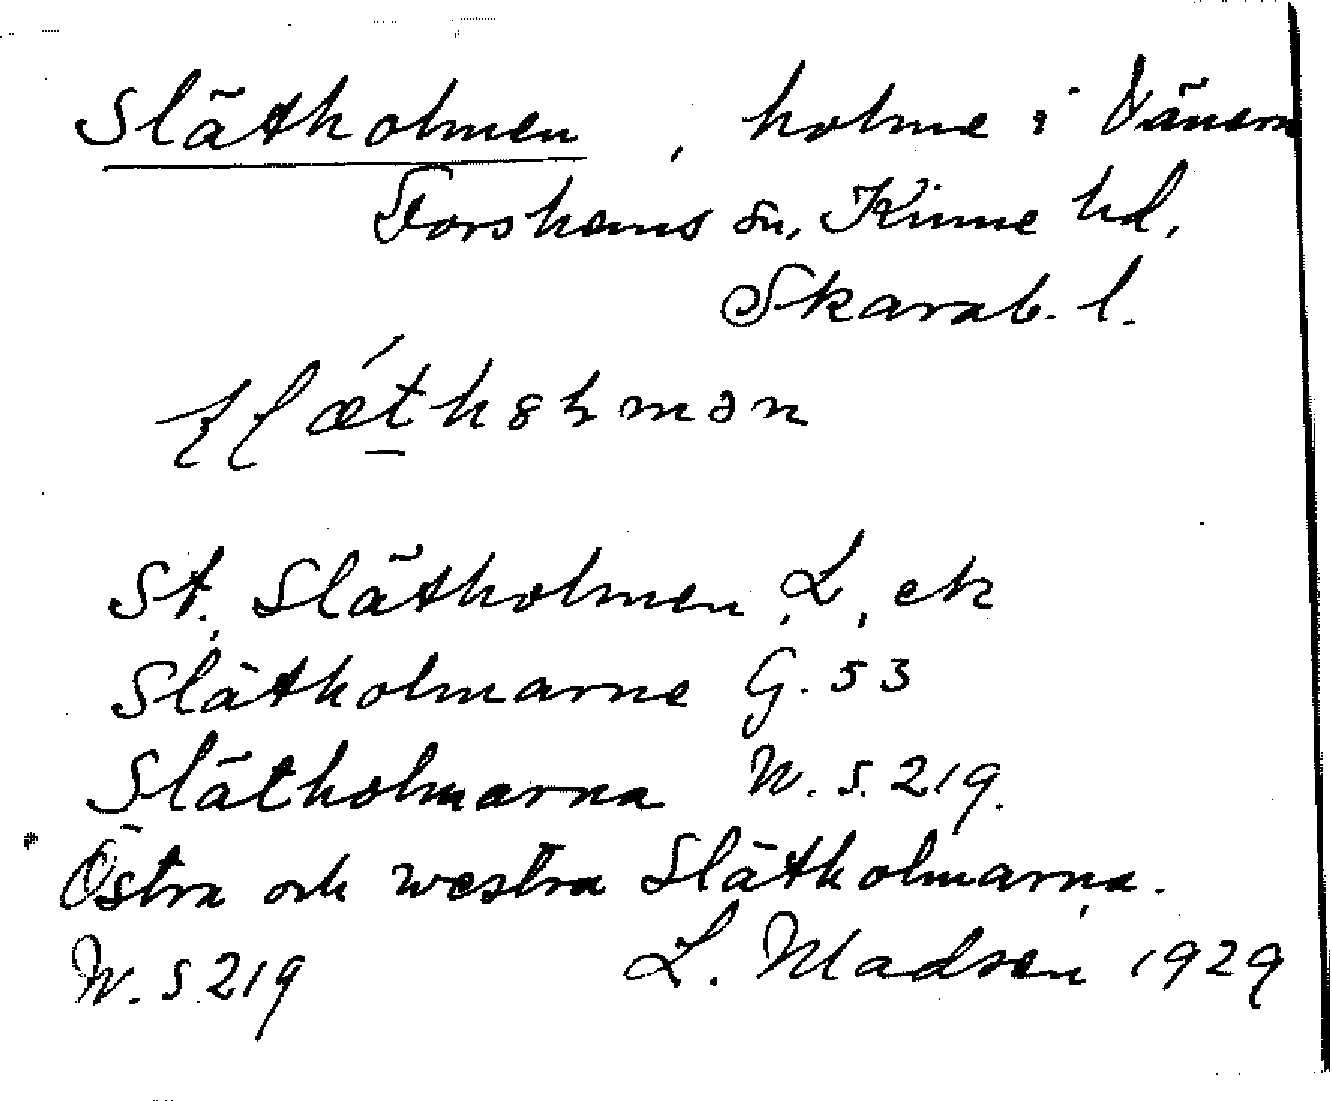 Slätholmen, holme i Vänern
Forshems sn, Kinne hd,
Skarab. l.
St. Slätholmen, L, ek
Slätholmarne G. 53
Slätholmarna W. s. 219.
Östra och westra Slätholmarna.
W. s. 219 L. Madsen 1929